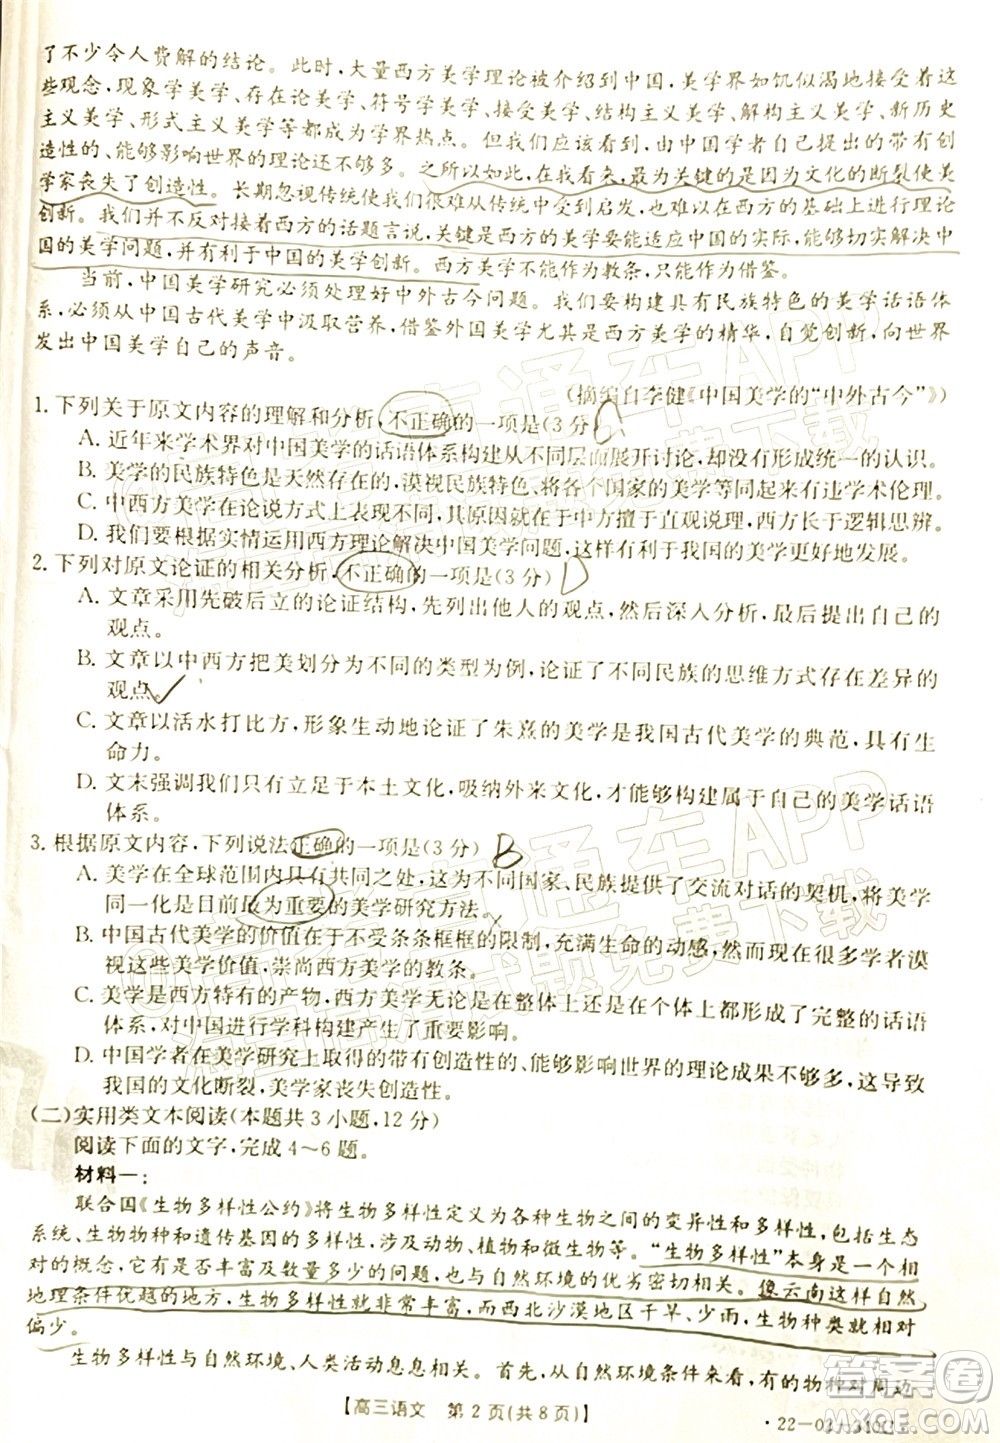 了不少令人费解的结论。此时,大量西方美学理论被介绍到中国,美学界如饥似渴地接受着这
些观念,现象学美学、存在论美学、符号学美学、接受美学、结构主义美学、解构主义美学、新历史
主义美学、形式主义美学等都成为美学界热点。但是,我们应该看到,中国美学家自己提出的带有创
造性的、能够影响世界的理论还不够多。之所以如此,在我看来,最为关键的是因为文化的断裂使美
学家丧失了创造性。长期忽视传统使我们很难从传统中受到启发,也难在西方的基础上进行理论
创新。我们并不反对接着西方的话题言说,关键是西方的美学要能适应中国的实际,能够切实解决中
国的美学问题,并有利于我国的美学创新。西方美学不能作为教条,只能作为借鉴。
当前,中国美学研究必须处理好中外古今问题。我们要构建具有民族特色的美学话语体
系,必须从中国古代美学中汲取营养,借鉴外国美学尤其是西方美学的精华,自觉创新,向世界
发出中国美学自己的声音。
(摘编自李健《中国美学的“中外古今”》)
1. 下列关于原文内容的理解和分析,不正确的一项是(3 分) C
A. 近年来学术界对中国美学的话语体系构建从不同层面展开讨论,却没有形成统一的认识。
B. 美学的民族特色是天然存在的,漠视民族特色,将各个国家的美学等同起来有违学术伦理。
C. 中西方美学在论说方式上表现不同,原因在于中方擅于直观说理,西方长于逻辑思辨。
D. 我们要根据实情运用西方理论解决中国美学问题,这样有利于我国的美学更好地发展。
2. 下列对原文论证的相关分析,不正确的一项是(3 分) D
A. 文章采用先破后立的论证结构,先列出他人的观点,然后深入分析,最后提出自己的
观点。
B. 文章以中西方把美划分为不同的类型为例,论证了不同民族的思维方式存在差异的
观点。
C. 文章以活水打比方,形象生动地论证了朱熹的美学是我国古代美学的典范,具有生
命力。
D. 文末强调我们只有立足于本土文化,吸纳外来文化,才能够构建属于自己的美学话语
体系。
3. 根据原文内容,下列说法正确的一项是(3 分) B
A. 美学在全球范围内具有共同之处,这给不同国家、民族提供了交流对话的契机,将美学
同一化是目前最为重要的美学研究方法。
B. 中国古代美学的价值在于不受条条框框的限制,充满生命的动感,所以当代学者不应漠
视这些美学价值,崇尚西方美学的教条。
C. 美学是西方特有的产物,西方美学无论是在整体上还是在个体上都形成了完整的话语
体系,对中国进行学科构建产生了重要影响。
D. 中国学者在美学研究上取得的带有创造性的、能够影响世界的理论成果不够多,这导致
我国的文化断裂,美学家丧失创造性。
(二)实用类文本阅读(本题共 3 小题,12 分)
阅读下面的文字,完成 4～6 题。
材料一:
联合国《生物多样性公约》将生物多样性定义为各种生物之间的变异性和多样性,包括生态
系统、生物物种和遗传基因的多样性,涉及动物、植物和微生物等。“生物多样性”本身是一个相
对的概念,它有是否丰富及数量多少的问题,也与自然环境的优劣密切相关。像云南这样自然
地理条件优越的地方,生物多样性就非常丰富,而西北沙漠地区干旱、少雨,生物种类就相对
偏少。
生物多样性与自然环境、人类活动息息相关。首先,从自然环境条件来看,有的物种对周边
【高三语文 第 2 页(共 8 页)】
答案圈